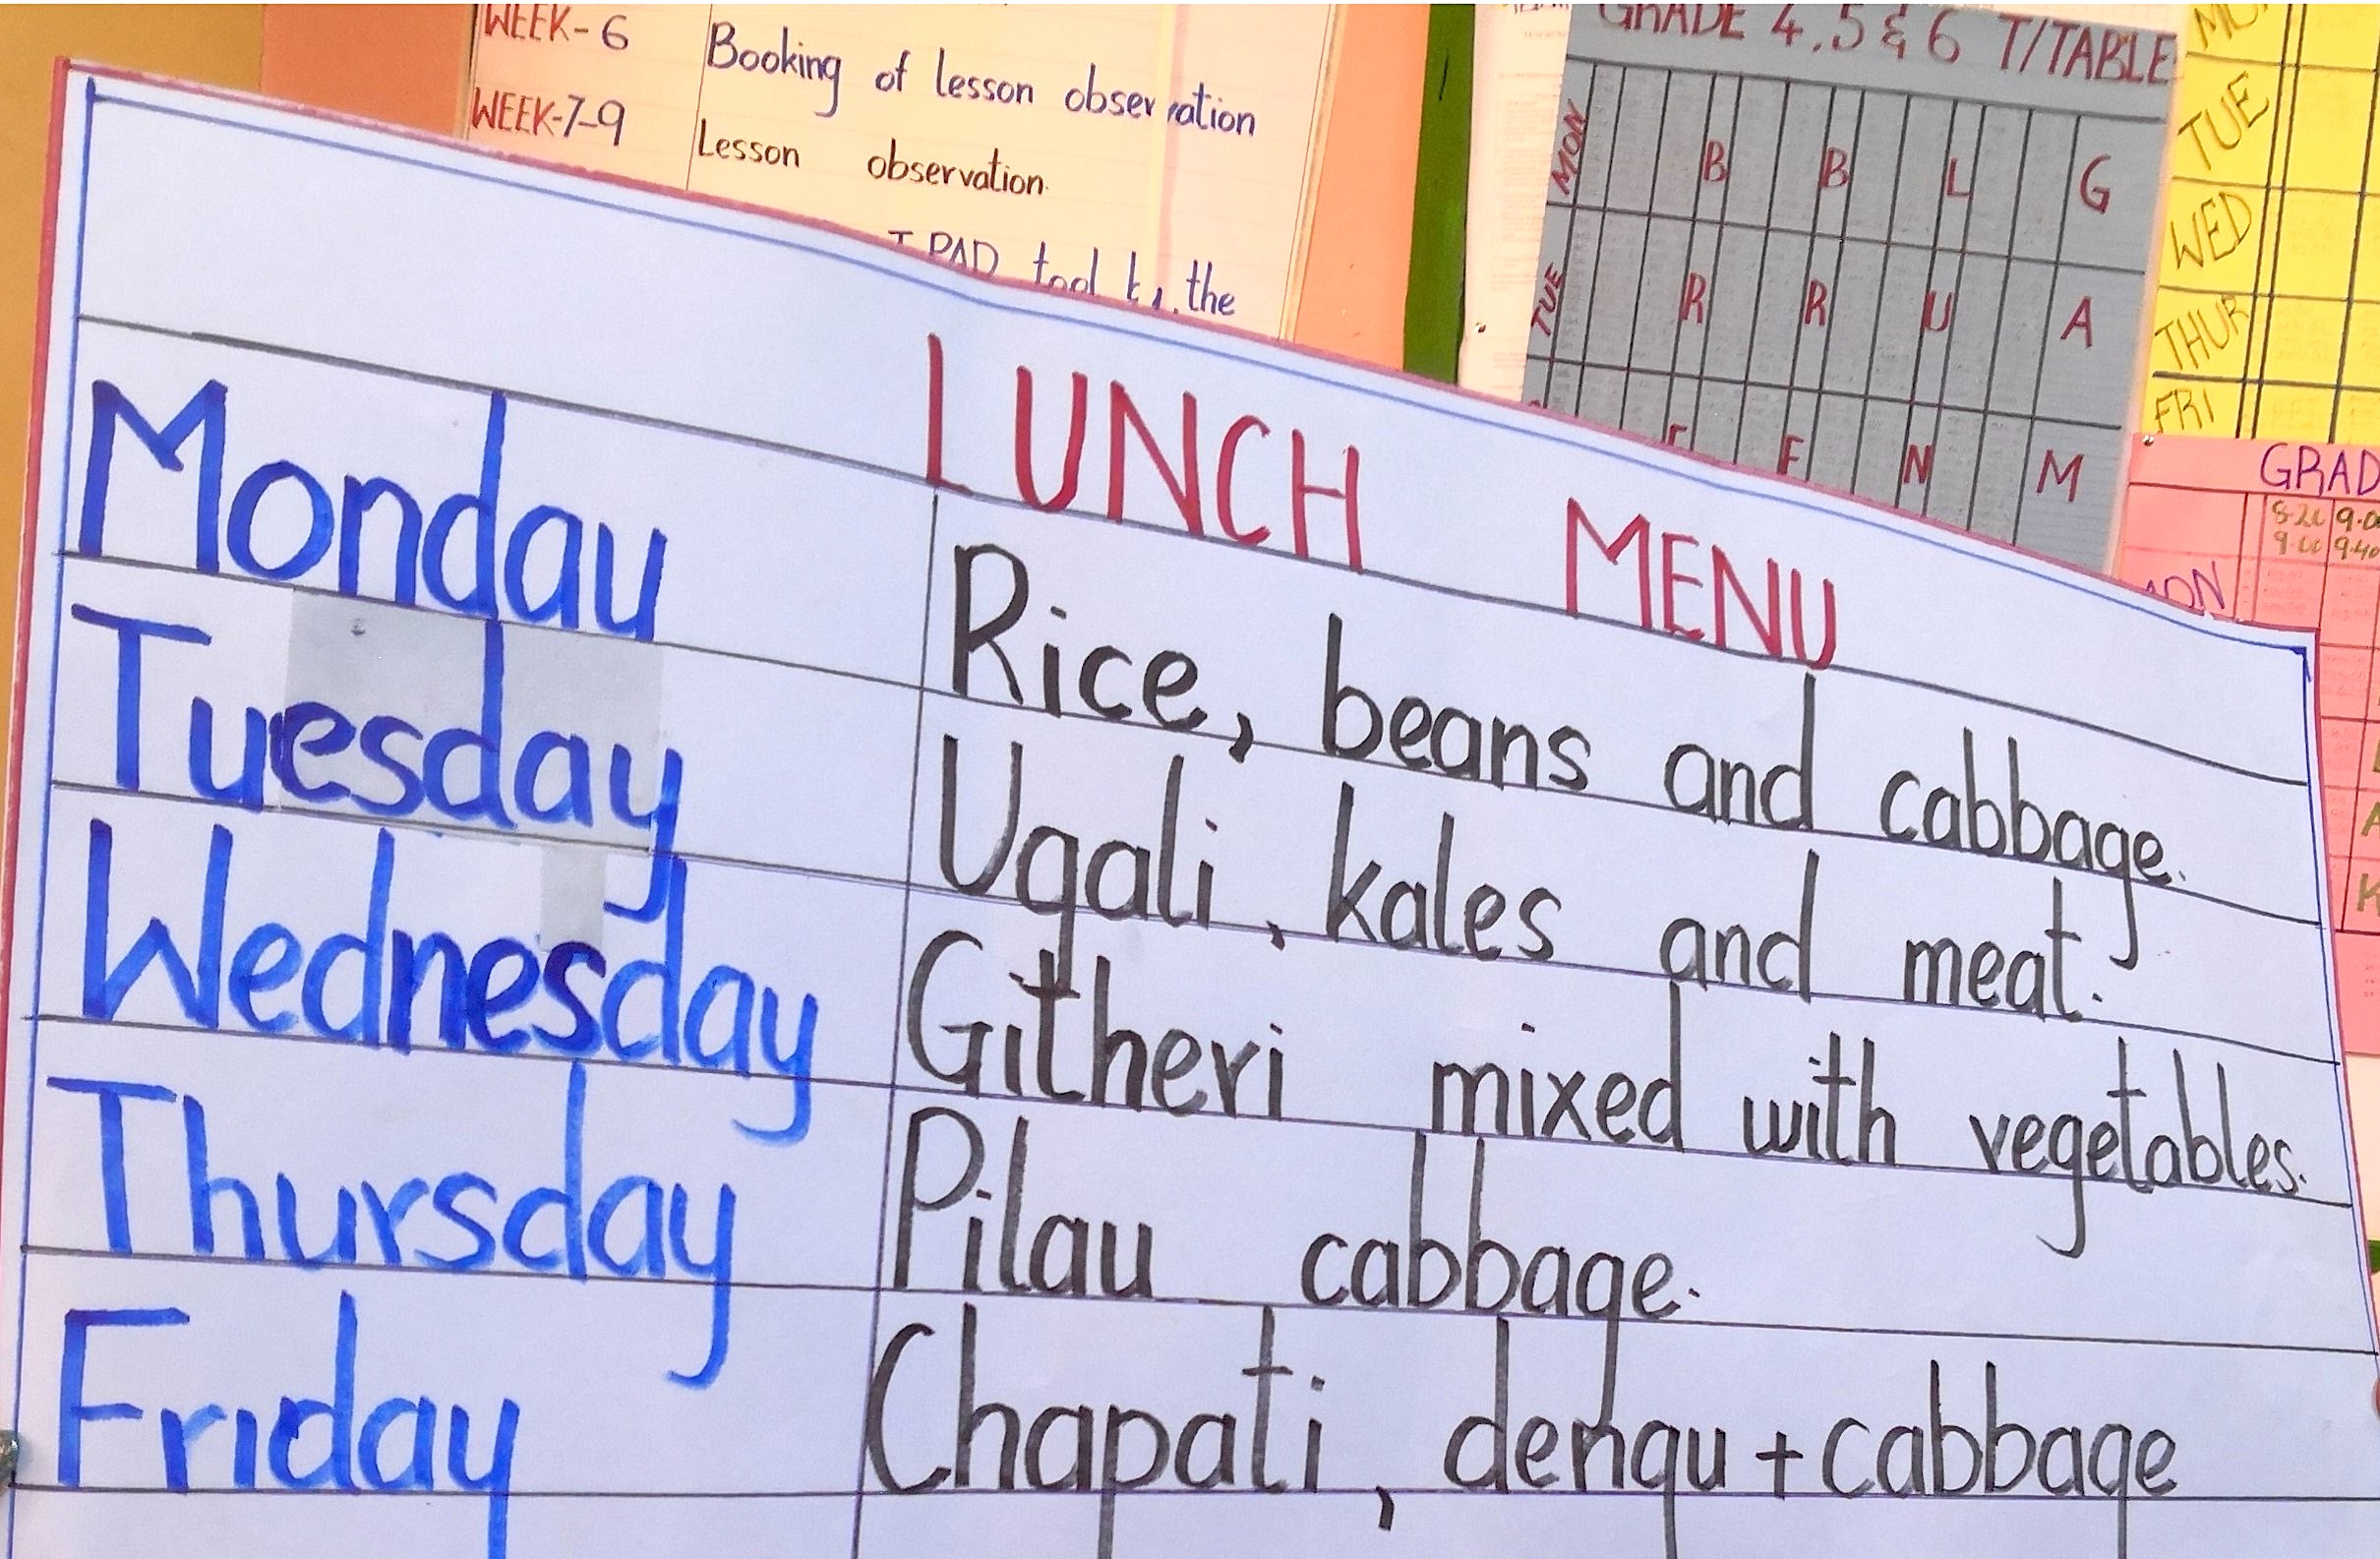 WEEK-6 Booking of lesson observation
WEEK-7-9 Lesson observation.
TPAD tool the
GRADE 4, 5 & 6 T/TABLE
MON B B L G
TUE R R U A
E N M
TUE
WED
THUR
FRI
GRAD
8-20 9-0
9-00 9-40
MON
LUNCH MENU
Monday Rice, beans and cabbage.
Tuesday Ugali, kales and meat.
Wednesday Githeri mixed with vegetables.
Thursday Pilau cabbage.
Friday Chapati, dengu + cabbage